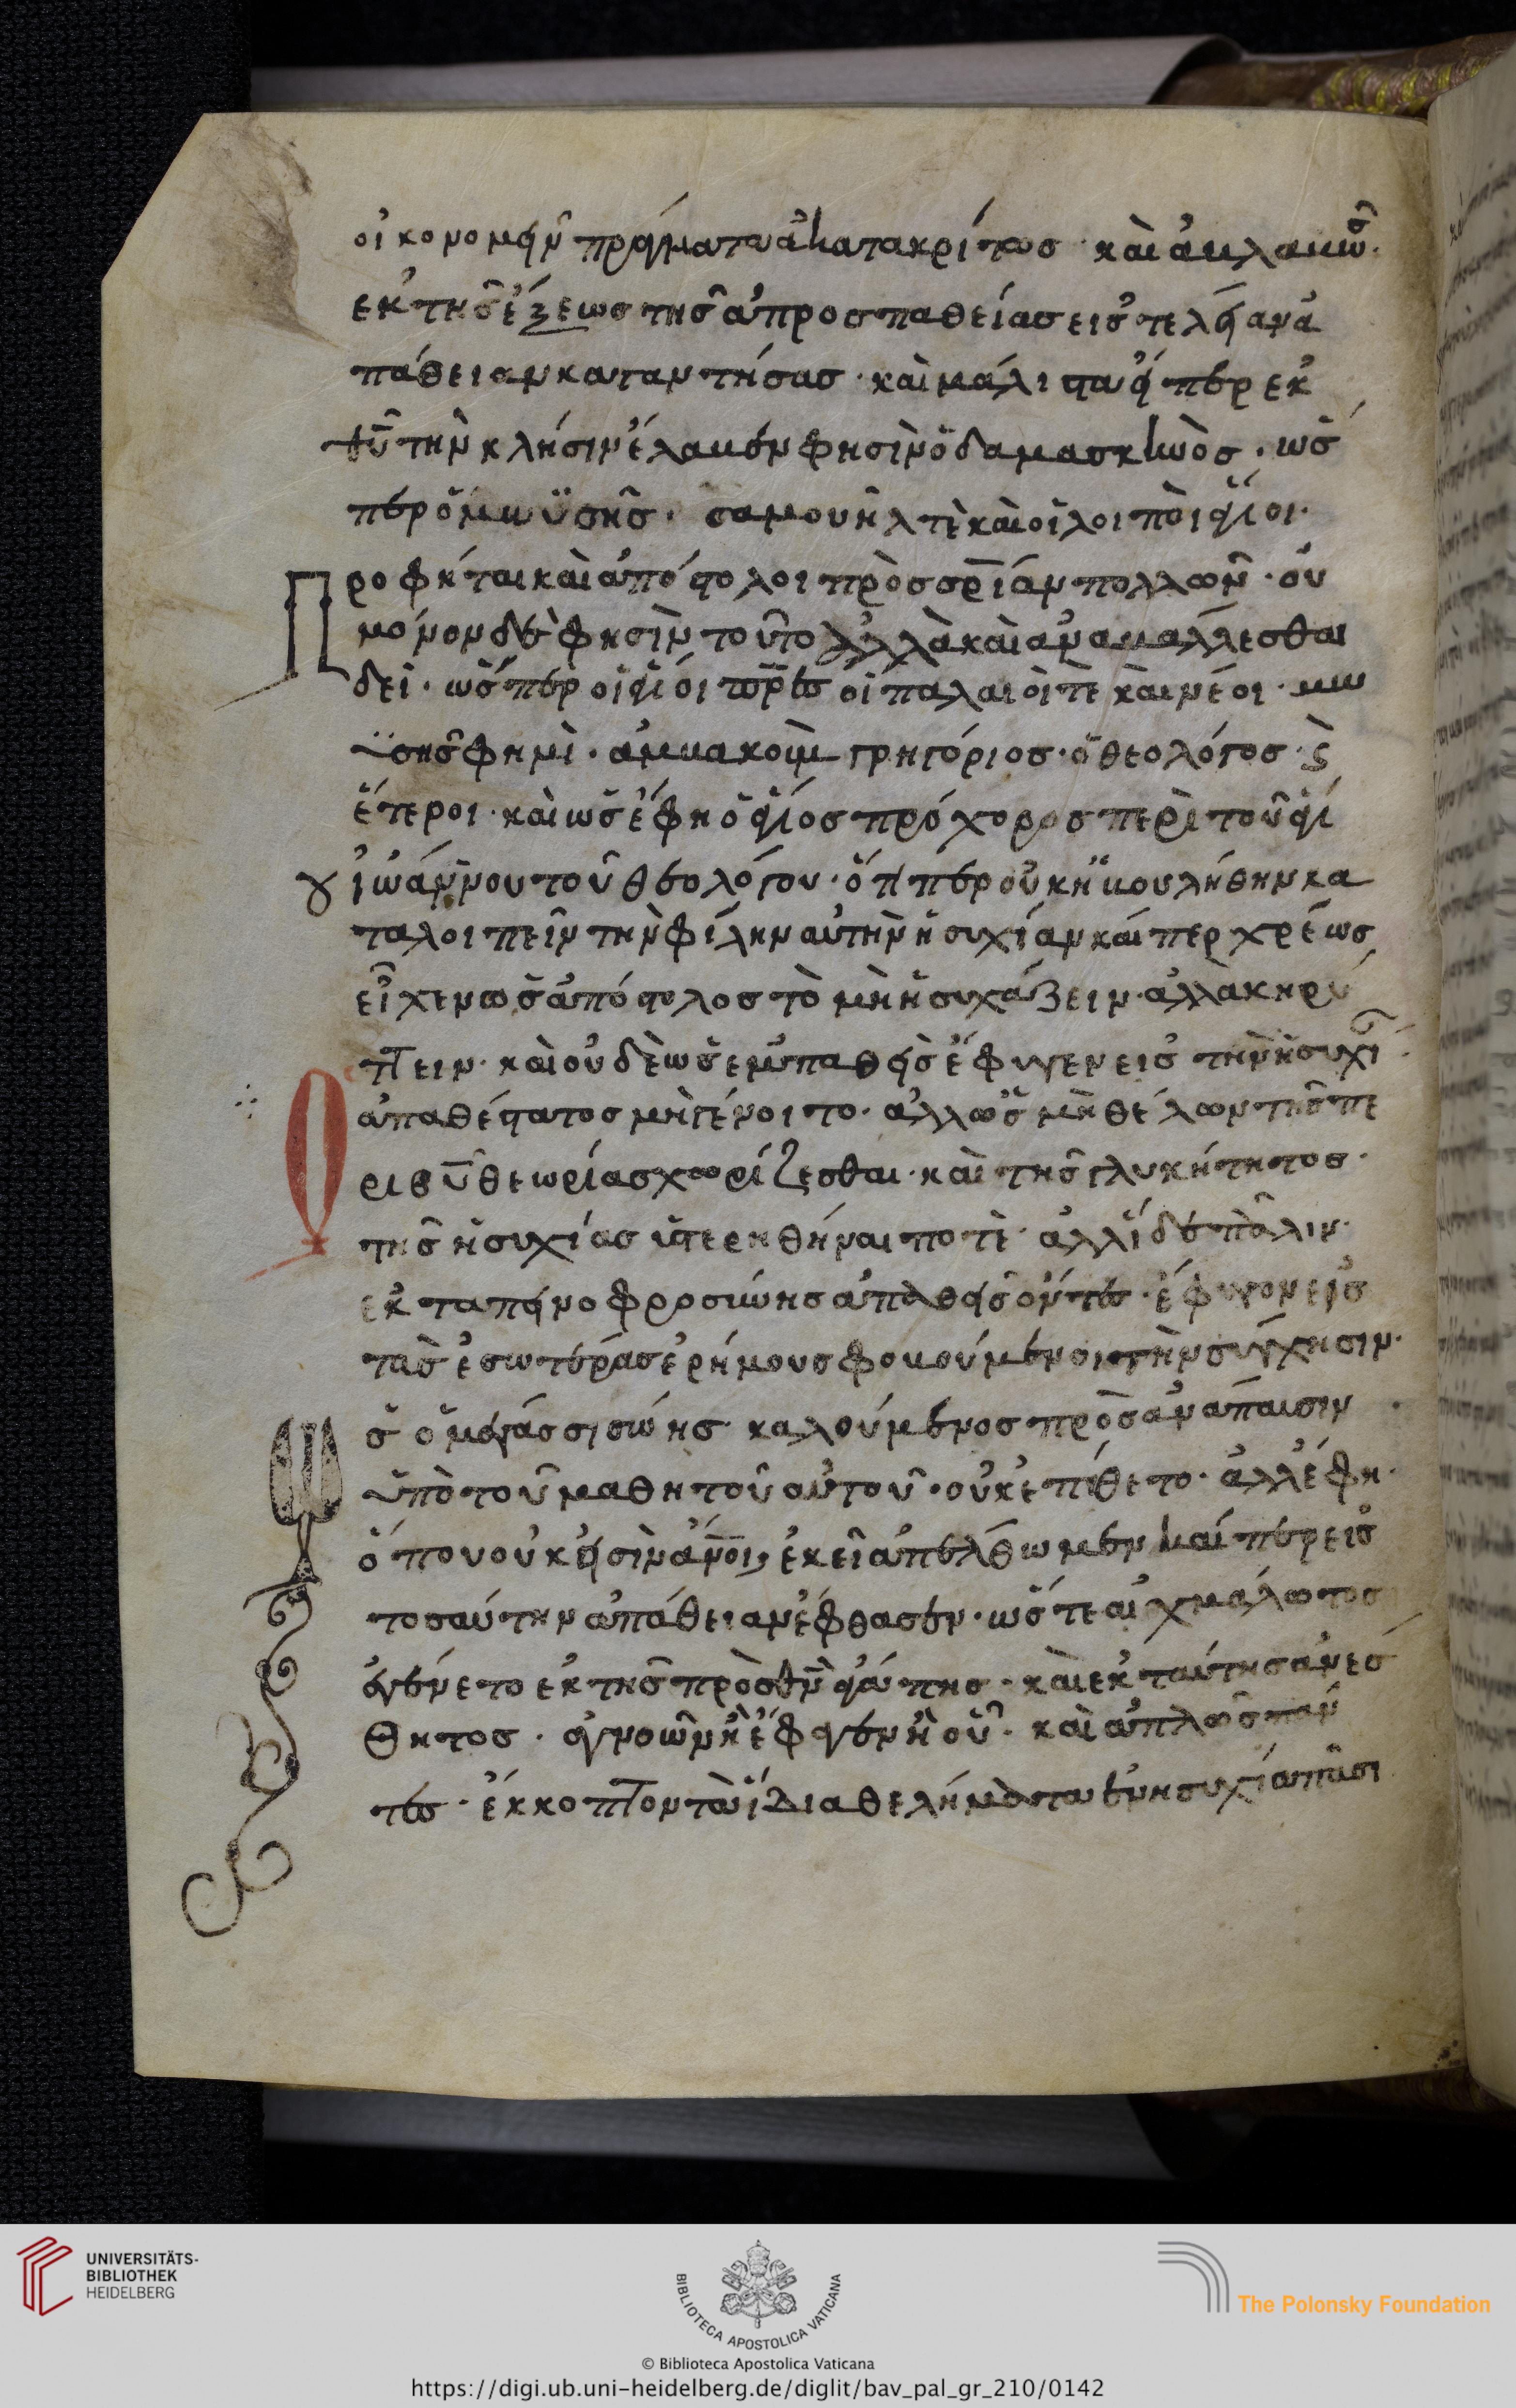 οἰκονομεῖν πράγματα ἀκατακρίτως· καὶ ἀβλαβῶς.
ἐκ τῆς ἕξεως τῆς ἀπροσπαθείας εἰς τελείαν ἀ
πάθειαν καταντήσας· καὶ μάλιστα εἴπερ ἐκ
θῦ τὴν κλῆσιν ἔλαβεν φησὶν ὁ δαμασκηνὸς· ὥσ
περ ὁ μωϋσῆς· σαμουὴλ τὲ καὶ οἱ λοιποὶ ἅγιοι·
Προφῆται καὶ ἀπόστολοι πρὸς σρίαν πολλῶν· οὐ
μόνον δὲ φησὶν τοῦτο ἀλλὰ καὶ ἀναβάλλεσθαι
δεῖ· ὥσπερ οἱ ἅγιοι πρες οἱ παλαιοὶ τὲ καὶ νέοι· μω
ϋσῆς φημὶ· ἀμβακοὺμ γρηγόριος· ὁ θεολόγος· ϛ
ἕτεροι· καὶ ὡς ἔφη ὁ ἅγιος πρόχορος περὶ τοῦ ἁγί
ου ἰωάννου τοῦ θεολόγου· ὅτιπερ οὐκ ἠβουλήθην κα
ταλοιπεῖν τὴν φίλην αὐτὴν ἡσυχίαν καίπερ χρέως
εἶχεν ὡς ἀπόστολος τὸ μὴ ἡσυχάζειν· ἀλλὰ κηρύ
ττειν· καὶ οὐδὲ ὡς ἐμπαθεὶς ἔφυγεν εἰς τὴν ἡσυχί
Ὁ ἀπαθέστατος μὴ γένοιτο· ἀλλ' ὡς μὴ θέλων τῆς πε
ρὶ θῦ θεωρίας χωρίζεσθαι· καὶ τῆς γλυκήτητος·
τῆς ἡσυχίας ὑστερηθῆναι ποτὲ· ἀλλ
ἐκ ταπεινοφροσύνης ἀπαθεῖς ὄντες· ἔφυγον εἰς
τὰς ἐσωτέρας ἐρήμους φοβούμενοι τὴν σύγχησιν·
ὡς ὁ μέγας σισώης· καλούμενος πρὸς ἀνάπαυσιν
ὑπὸ τοῦ μαθητοῦ αὐτοῦ· οὐκ ἐπίθετο· ἀλλ' ἔφη·
ὅπου οὐκ εἰσὶν ἀνοι, ἐκεῖ ἀπέλθωμεν καίπερ εἰς
τοσαύτην ἀπάθειαν ἔφθασεν· ὥστε αἰχμάλωτος
ἐγένετο ἐκ τῆς πρὸς θν ἀγάπης· καὶ ἐκ ταύτης ἀνεσ
θητος· ἀγνοῶν ἢ ἔφαγεν ἢ οὒ· καὶ ἁπλῶς πάν
τες· ἔκκοπτον τὰ ἴδια θελήματα ἐν ἡσυχία πᾶσι
UNIVERSITÄTS-
BIBLIOTHEK
HEIDELBERG
BIBLIOTECA APOSTOLICA VATICANA
The Polonsky Foundation
© Biblioteca Apostolica Vaticana
https://digi.ub.uni-heidelberg.de/diglit/bav_pal_gr_210/0142